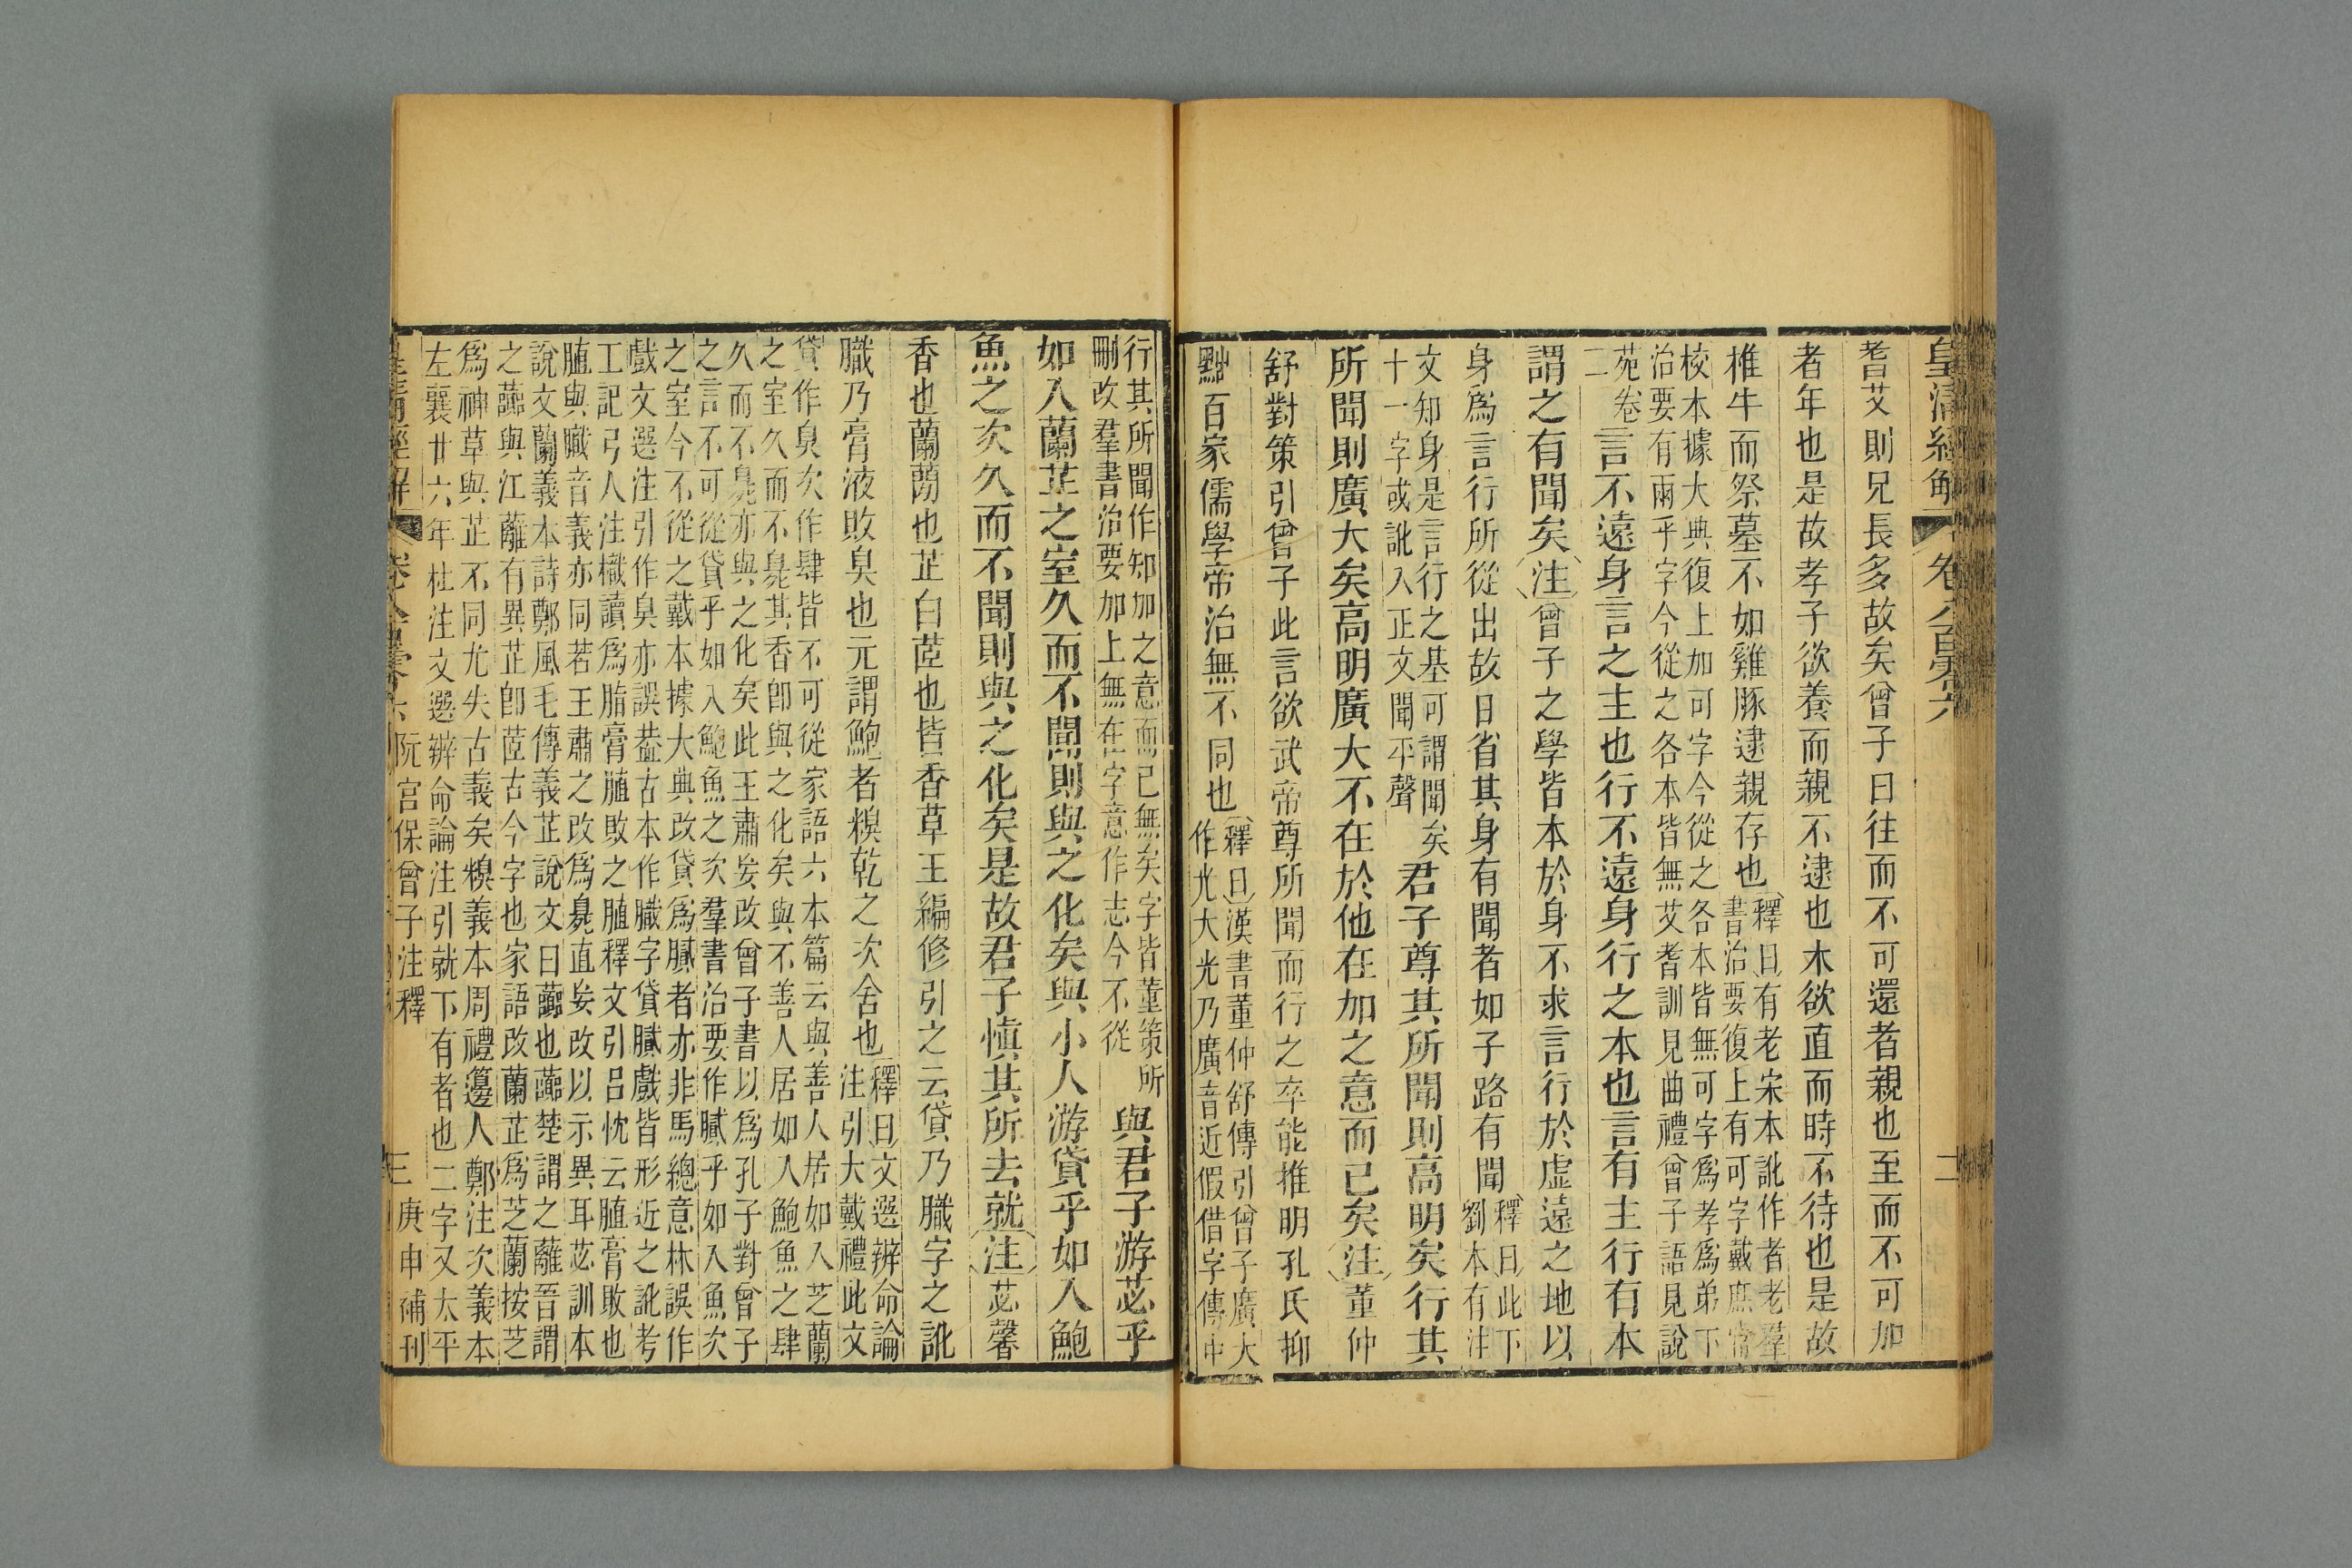 皇清經解 卷八百零六 二
耆艾則兄長多故矣曾子曰往而不可還者親也至而不可加
者年也是故孝子欲養而親不逮也木欲直而時不待也是故
椎牛而祭墓不如雞豚逮親存也
釋曰有老宋本訛作者老羣
書治要復上有可字戴庶常
校本據大典復上加可字今從之各本皆無可字爲孝爲弟下
治要有兩乎字今從之各本皆無艾耆訓見曲禮曾子語見說
苑卷
二
言不遠身言之主也行不遠身行之本也言有主行有本
謂之有聞矣注曾子之學皆本於身不求言行於虛遠之地以
身爲言行所從出故日省其身有聞者如子路有聞
釋曰此下
劉本有注
文知身是言行之基可謂聞矣
十一字或訛入正文聞平聲
君子尊其所聞則高明矣行其
所聞則廣大矣高明廣大不在於他在加之意而已矣注董仲
舒對策引曾子此言欲武帝尊所聞而行之卒能推明孔氏抑
黜百家儒學帝治無不同也
釋曰漢書董仲舒傳引曾子廣大
作光大光乃廣音近假借字傳中
行其所聞作知加之意而已無矣字皆董策所
刪改羣書治要加上無在字意作志今不從
與君子游苾乎
如入蘭芷之室久而不聞則與之化矣與小人游貸乎如入鮑
魚之次久而不聞則與之化矣是故君子慎其所去就注苾馨
香也蘭蕳也芷白茝也皆香草王編修引之云貸乃膱字之訛
膱乃膏液敗臭也元謂鮑者糗乾之次舍也
釋曰文選辨命論
注引大戴禮此文
貸作臭次作肆皆不可從家語六本篇云與善人居如入芝蘭
之室久而不臭其香卽與之化矣與不善人居如入鮑魚之肆
久而不臭亦與之化矣此王肅妄改曾子書以爲孔子對曾子
之言不可從貸乎如入鮑魚之次羣書治要作膩乎如入魚次
之室今不從之戴本據大典改貸爲膩者亦非馬總意林誤作
戲文選注引作臭亦誤葢古本作膱字貸膩戲皆形近之訛考
工記弓人注樴讀爲脂膏䐈敗之䐈釋文引呂忱云䐈膏敗也
䐈與膱音義亦同若王肅之改爲臭直妄改以示異耳苾訓本
說文蘭義本詩鄭風毛傳義芷說文曰虈也虈楚謂之蘺晉謂
之虈與江蘺有異芷卽茝古今字也家語改蘭芷爲芝蘭按芝
爲神草與芷不同尤失古義矣糗義本周禮籩人鄭注次義本
左襄廿六年杜注文選辨命論注引就下有者也二字又太平
皇清經解 卷八百零六 阮宮保曾子注釋 三 庚申補刊